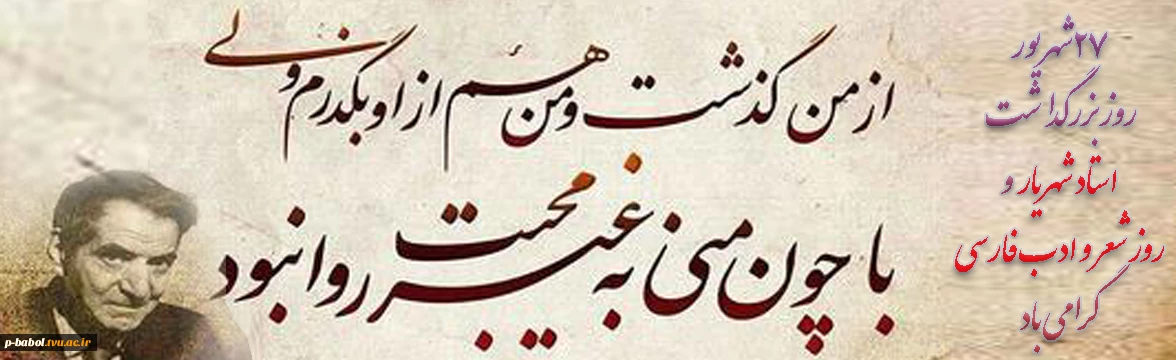 از من گذشت و من هم از او بگذرم ولی
با چون منی به غیر محبت روا نبود
۲۷ شهریور
روز بزرگداشت
استاد شهریار و
روز شعر و ادب فارسی
گرامی باد
p-babol.tvu.ac.ir